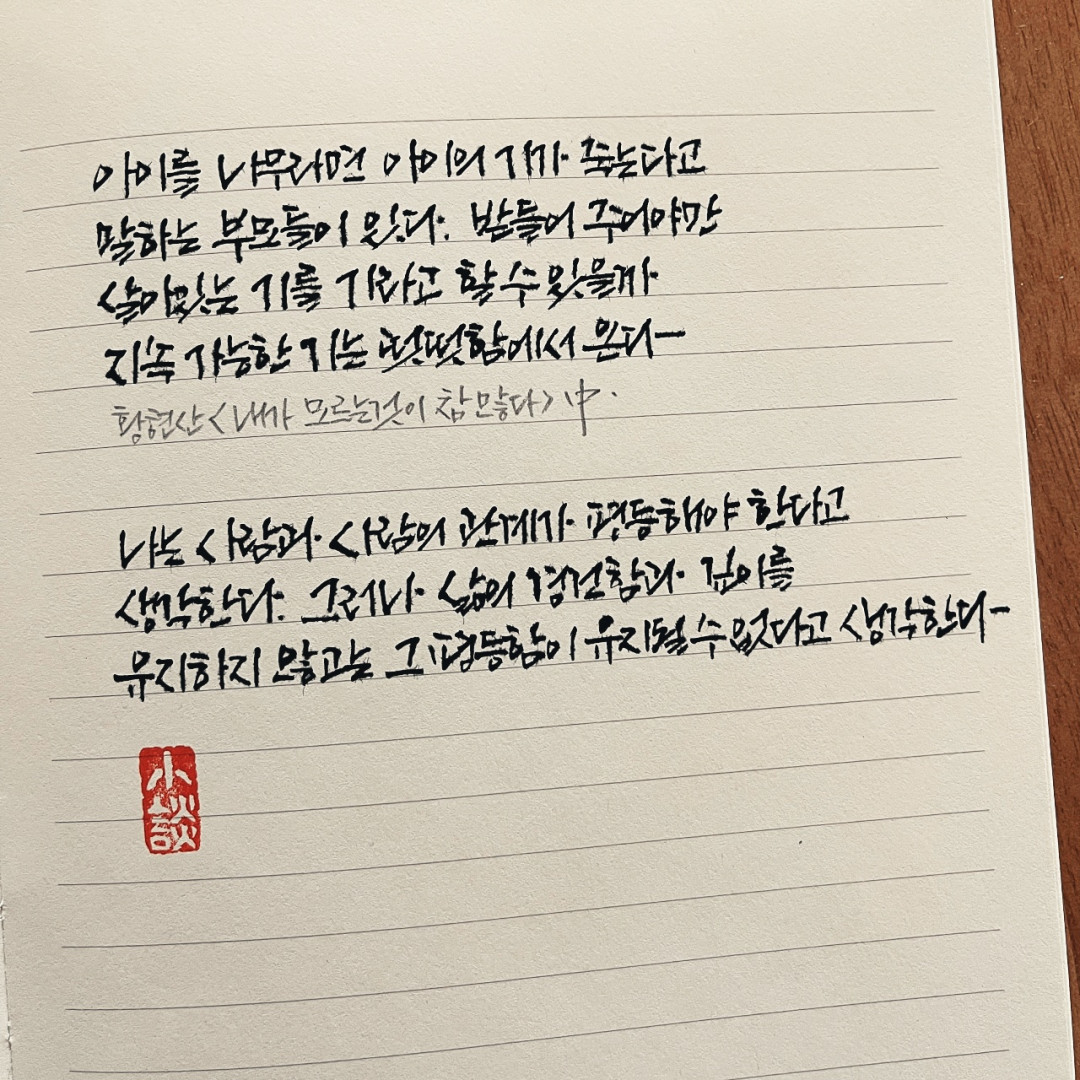 아이를 나무라면 아이의 기가 죽는다고
말하는 부모들이 있다. 받들어 주어야만
살아있는 기를 기라고 할 수 있을까
지속 가능한 기는 떳떳함에서 온다
황현산 <내가 모르는 것이 참 많다> 中.
나는 사람과 사람의 관계가 평등해야 한다고
생각한다. 그러나 삶의 경건함과 깊이를
유지하지 않고는 그 평등함이 유지될 수 없다고 생각한다
小談